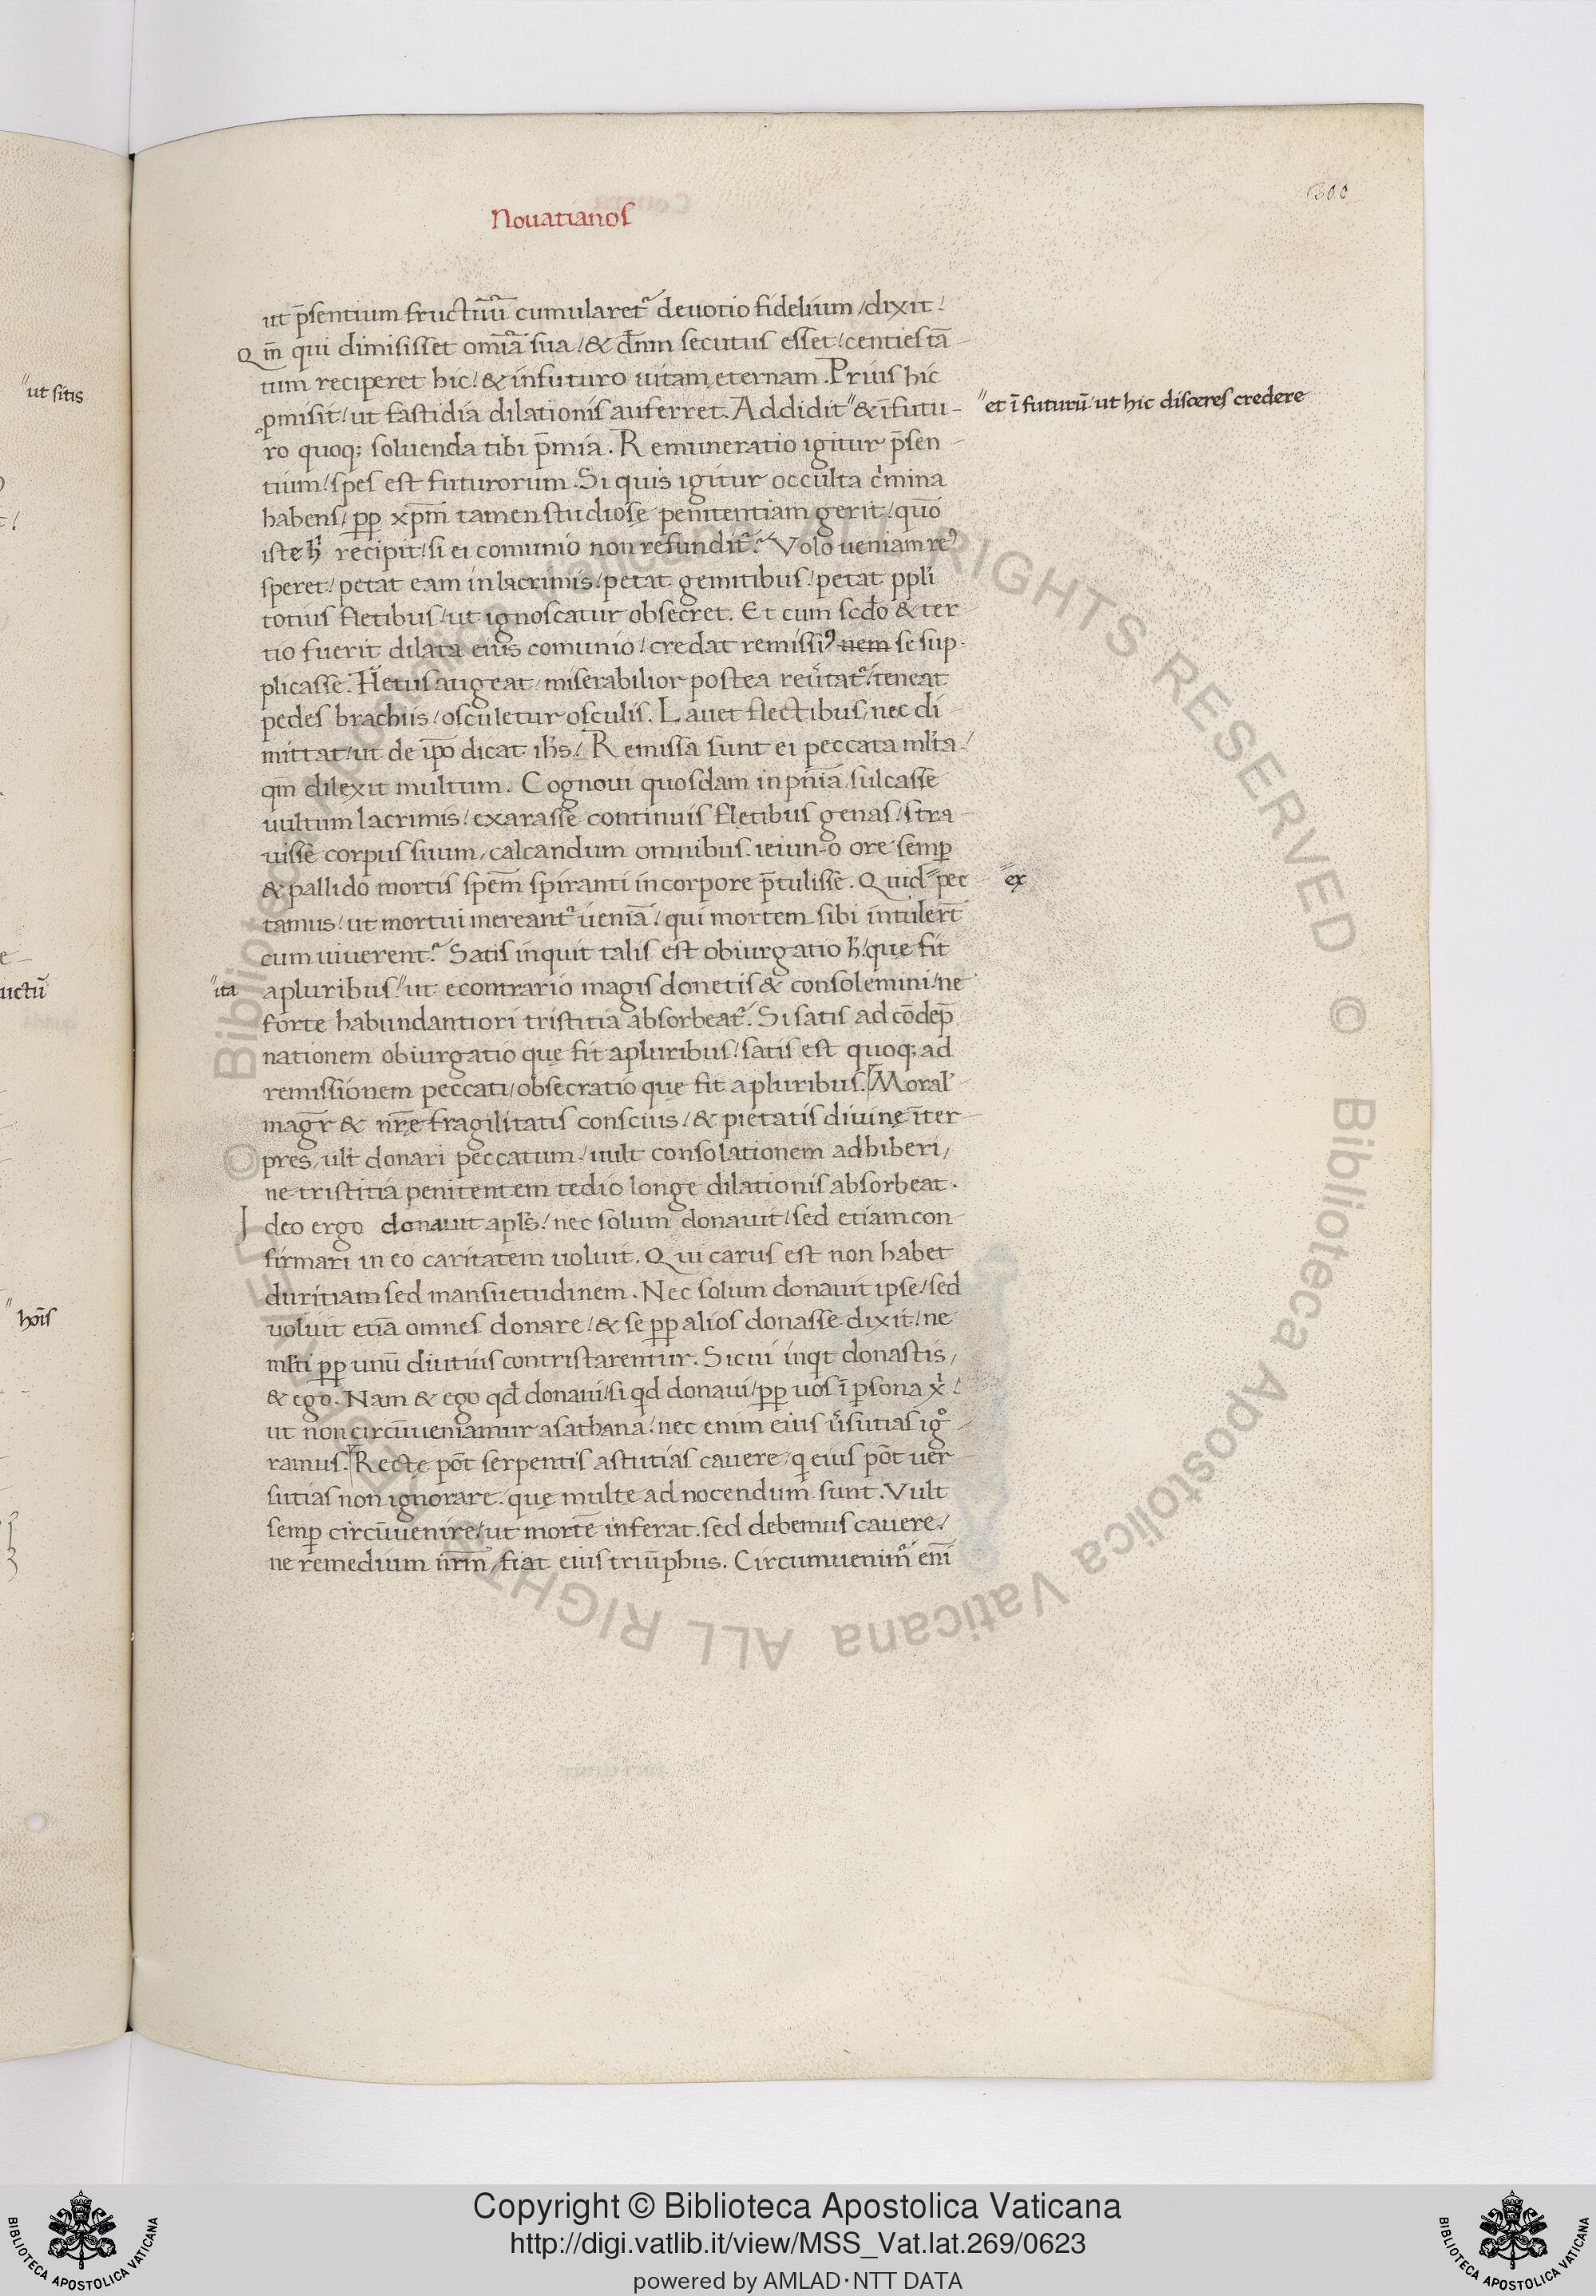 300
Nouatianos
ut p̄sentium fructuū cumularet᷑ deuotio fidelium / dixit /
Qm̄ qui dimisisset omīa sua / & dn̄m secutus esset / centies tā
tum reciperet hic / & infuturo uitam eternam . Prius hic
ꝓmisit / ut fastidia dilationis auferret . Addidit " & ī futu-
" et ī futurū ut hic disceres credere
ro quoq; soluenda tibi p̄mia . Remuneratio igitur p̄sen
tium / spes est futurorum . Si quis igitur occulta c'mina
habens / ꝓꝑ xp̄m tamen studiose penitentiam gerit / quō
iste h' recipit / si ei comunio non refundit᷑ . Volo ueniam reꝰ
speret / petat eam in lacrimis / petat gemitibus / petat ppli
totius fletibus / ut ignoscatur obsecret . Et cum scdo & ter
tio fuerit dilata eius comunio / credat remissiꝰ nem se sup
plicasse . Fletus augeat / miserabilior postea reūtat᷑ / teneat
pedes brachiis / osculetur osculis . Lauet flectibus / nec di
mittat / ut de ip̄o dicat ihs / Remissa sunt ei peccata mlta /
qm̄ dilexit multum . Cognoui quosdam in pn̄ia / sulcasse
uultum lacrimis / exarasse continuis fletibus genas / stra
uisse corpus suum / calcandum omnibus . ieiun-o ore semꝑ
& pallido mortis spem̄ spiranti incorpore p̄tulisse . Quid " pec
" ex
tamus / ut mortui mereant᷑ ueniā / qui mortem sibi intulert̄
cum uiuerent᷑ . Satis inquit talis est obiurgatio h' / que fit
" ita
apluribus / " ut econtrario magis donetis & consolemini / ne
forte habundantiori tristitia absorbeat᷑ . Si satis ad cōdep̄
nationem obiurgatio que fit apluribus / satis est quoq; ad
remissionem peccati / obsecratio que fit apluribus . Moral'
magr̄ & nr̄ę fragilitatis conscius / & pietatis diuinę īter
pres / ult donari peccatum / uult consolationem adhiberi /
ne tristitia penitentem tedio longe dilationis absorbeat .
Ideo ergo donauit apls / nec solum donauit / sed etiam con
firmari in eo caritatem uoluit . Qui carus est non habet
duritiam sed mansuetudinem . Nec solum donauit ipse / sed
uoluit etiā omnes donare / & se ꝓꝑ alios donasse dixit / ne
mlti ꝓꝑ unū diutius contristarentur . Sicui inqt donastis /
& ego . Nam & ego qd donaui / si qd donaui / ꝓꝑ uos ī ꝑsona x' /
ut non circūueniamur asathana / nec enim eius u'sutias ig°
ramus . Recte pōt serpentis astutias cauere / q eius pōt uer
sutias non ignorare / quę multe ad nocendum sunt . Vult
semꝑ circūuenire / ut mortē inferat . sed debemus cauere /
ne remedium nr̄m / fiat eius triūphus . Circumuenim᷑ enī
" ut sitis
" hoīs
Copyright © Biblioteca Apostolica Vaticana
http://digi.vatlib.it/view/MSS_Vat.lat.269/0623
powered by AMLAD·NTT DATA
BIBLIOTECA APOSTOLICA VATICANA
BIBLIOTECA APOSTOLICA VATICANA
© Biblioteca Apostolica Vaticana ALL RIGHTS RESERVED
© Biblioteca Apostolica Vaticana ALL RIGHTS RESERVED